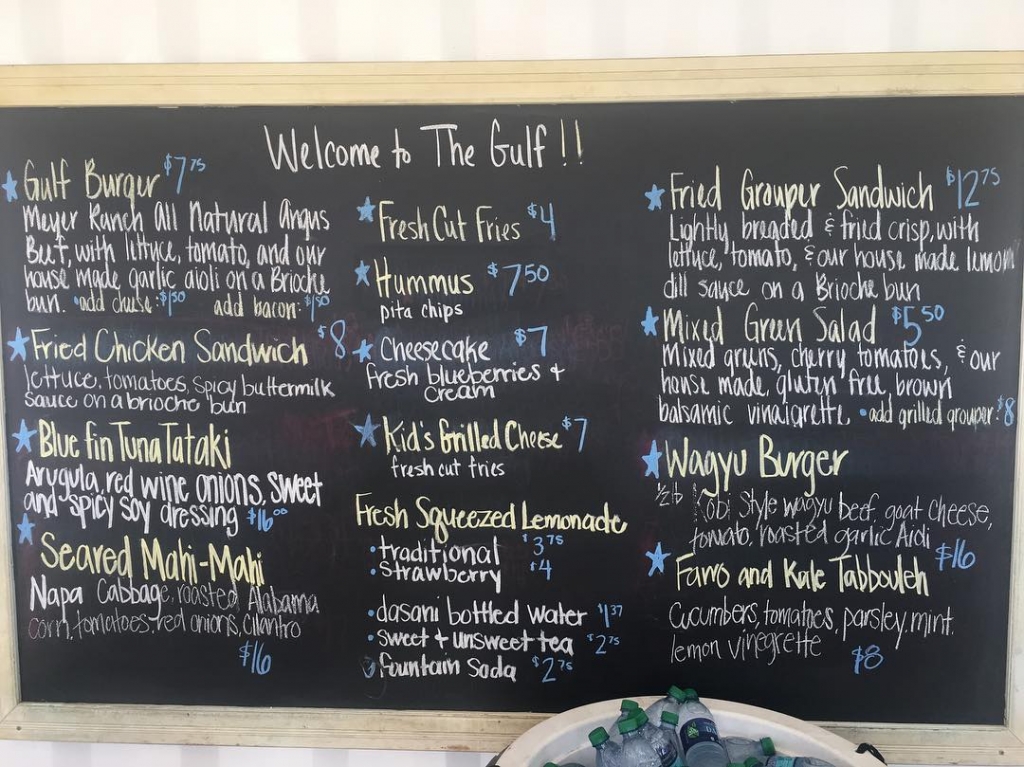 Welcome to The Gulf!!
Gulf Burger $7.75
Meyer Ranch All Natural Angus
Beef, with lettuce, tomato, and our
house made garlic aioli on a Brioche
bun. •add cheese: $1.50 add bacon: $1.50
Fried Chicken Sandwich $8
lettuce, tomatoes, spicy buttermilk
sauce on a brioche bun
Blue fin Tuna Tataki
Arugula, red wine onions, sweet
and spicy soy dressing $16.00
Seared Mahi-Mahi
Napa Cabbage, roasted Alabama
corn, tomatoes, red onions, cilantro
$16
Fresh Cut Fries $4
Hummus $7.50
pita chips
Cheesecake $7
fresh blueberries +
cream
Kid's Grilled Cheese $7
fresh cut fries
Fresh Squeezed Lemonade
•traditional $3.75
•strawberry $4
•dasani bottled water $1.37
•sweet + unsweet tea $2.75
•fountain soda $2.75
Fried Grouper Sandwich $12.75
Lightly breaded & fried crisp, with
lettuce, tomato, & our house made lemon
dill sauce on a Brioche bun
Mixed Green Salad $5.50
Mixed greens, cherry tomatoes, & our
house made, gluten free brown
balsamic vinaigrette •add grilled grouper: $8
Wagyu Burger
1/2 lb Kobi Style wagyu beef, goat cheese,
tomato, roasted garlic Aioli $16
Farro and Kale Tabbouleh
Cucumbers, tomatoes, parsley, mint,
lemon vinegrette $8